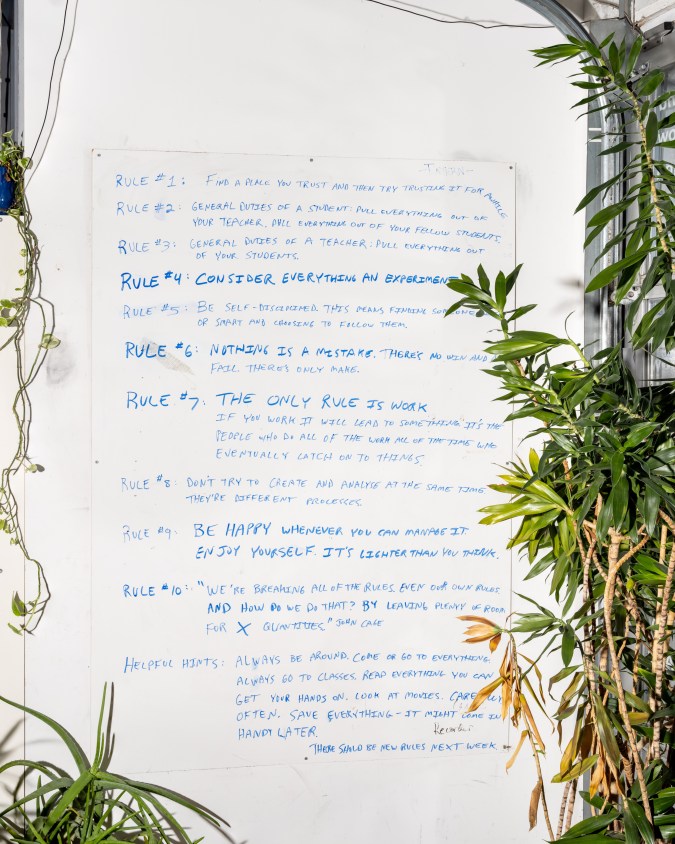 RULE #1: FIND A PLACE YOU TRUST AND THEN TRY TRUSTING IT FOR AWHILE
RULE #2: GENERAL DUTIES OF A STUDENT: PULL EVERYTHING OUT OF
YOUR TEACHER. PULL EVERYTHING OUT OF YOUR FELLOW STUDENTS.
RULE #3: GENERAL DUTIES OF A TEACHER: PULL EVERYTHING OUT
OF YOUR STUDENTS.
RULE #4: CONSIDER EVERYTHING AN EXPERIMENT
RULE #5: BE SELF-DISCIPLINED. THIS MEANS FINDING SOMEONE
OR SMART AND CHOOSING TO FOLLOW THEM.
RULE #6: NOTHING IS A MISTAKE. THERE'S NO WIN AND
FAIL THERE'S ONLY MAKE.
RULE #7: THE ONLY RULE IS WORK
IF YOU WORK IT WILL LEAD TO SOMETHING. IT'S THE
PEOPLE WHO DO ALL OF THE WORK ALL OF THE TIME WHO
EVENTUALLY CATCH ON TO THINGS.
RULE #8: DON'T TRY TO CREATE AND ANALYSE AT THE SAME TIME
THEY'RE DIFFERENT PROCESSES.
RULE #9: BE HAPPY WHENEVER YOU CAN MANAGE IT.
ENJOY YOURSELF. IT'S LIGHTER THAN YOU THINK.
RULE #10: "WE'RE BREAKING ALL OF THE RULES. EVEN OUR OWN RULES
AND HOW DO WE DO THAT? BY LEAVING PLENTY OF ROOM
FOR X QUANTITIES" JOHN CAGE
HELPFUL HINTS: ALWAYS BE AROUND. COME OR GO TO EVERYTHING.
ALWAYS GO TO CLASSES. READ EVERYTHING YOU CAN
GET YOUR HANDS ON. LOOK AT MOVIES. CAREFULLY
OFTEN. SAVE EVERYTHING - IT MIGHT COME IN
HANDY LATER.
THERE SHOULD BE NEW RULES NEXT WEEK.